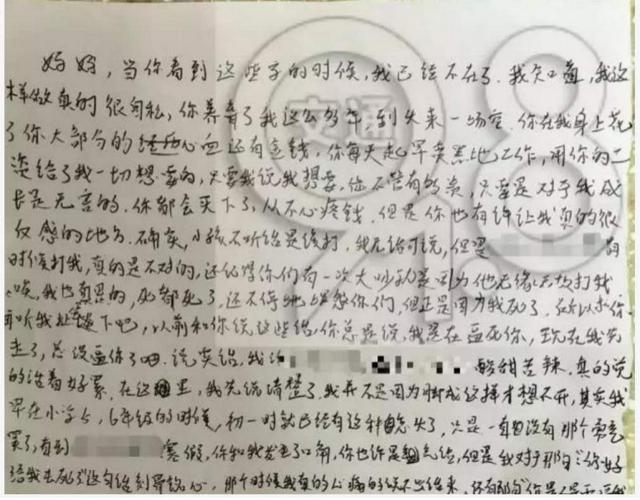 妈妈，当你看到这些字的时候，我已经不在了。我知道，我这
样做真的很自私，你养育了我这么多年到头来一场空。你在我身上花
了你大部分的心血还有金钱，你每天起早贪黑地工作，用你的工
资给了我一切想要的，只要我说我想要，你不管有多贵，只要是对于我成
长是无害的，你都会买下了，从不心疼钱。但是你也有许让我真的很
反感的地方。确实，小孩不听话是该打，我无话可说，但是
时候打我，真的是不对的，还记得你们有一次大吵
唉，我也真是的，死都死了，还不停地 你们，但正是因为我死了，所以求你
听我 下吧，以前和你说这些话，你总是说，我是在逼死你，现在我先
走了，总没逼你了吧。说实话，我 酸甜苦辣，真的说
的活着好累。在这里，我先说清楚了，我并不是因为 成这样才想不开，其实我
早在小学5、6年级的时候，初一时就已经有这种念头了，只是一直没有那个勇气
罢了，直到 寒假，你和我发生了口角，你也许是 话，但是我对于那句
给我去死 这句话刻骨铭心，那个时候我真的心痛的说不出话来，还有那句
交通
918